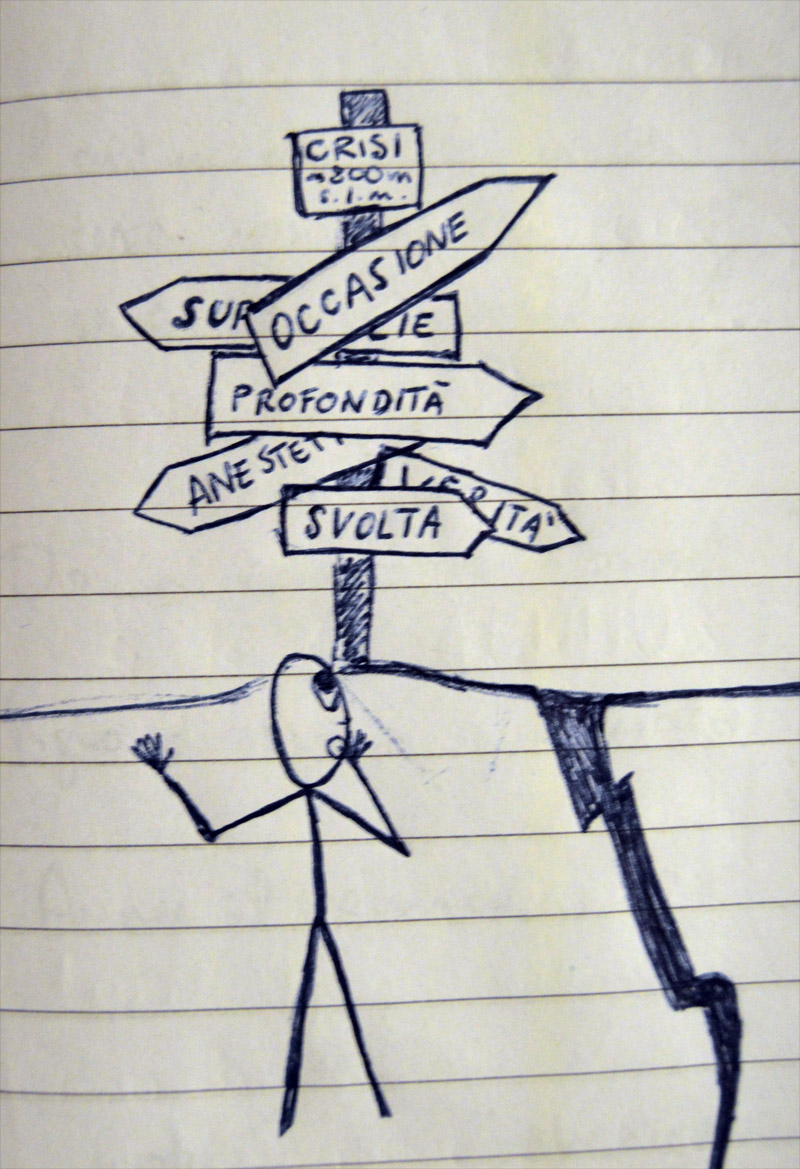 CRISI
~200m
s.l.m.
OCCASIONE
SUP CIE
PROFONDITÀ
ANESTET
VERITA'
SVOLTA